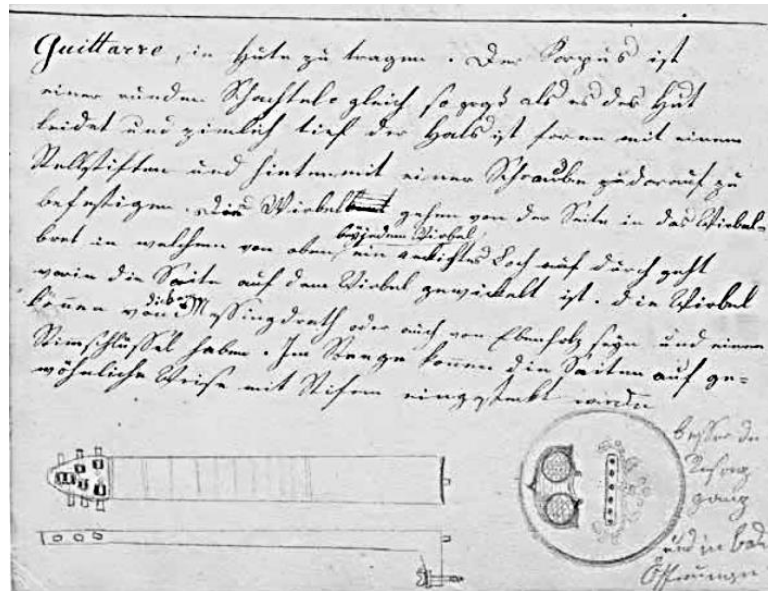 Guittarre, in Hute zu tragen. Der Korpus ist
einer runden Schachtel gleich so groß als es der Hut
leidet und zimlich tief der Hals ist foren mit einem
Stellstiften und hinten mit einer Schraube zu darauf zu
befestigen. Die Wirbel gehen von der Seite in das Wirbel-
bret in welchen von oben bey jedem Wirbel ein eckichtes Loch auf durch geht
worin die Seite auf dem Wirbel gewickelt ist. die Wirbel
können von Messingdrath oder auch von Ebenholz seyn und einen
Stimschlüssel haben. Im Stege können die Saiten auf ge-
wöhnliche Weise mit Stiften eingesteckt werden
besser der
ganz
und in
Öffnungen